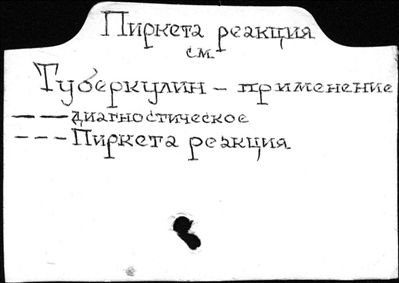 Пиркета реакция
см.
Туберкулин – применение
— — диагностическое
– – – Пиркета реакция